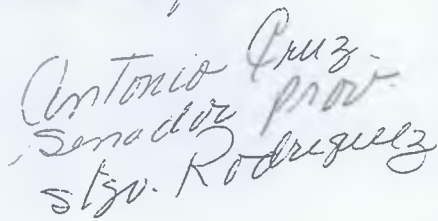 Antonio Cruz.
Senador prov.
stgo. Rodriguez